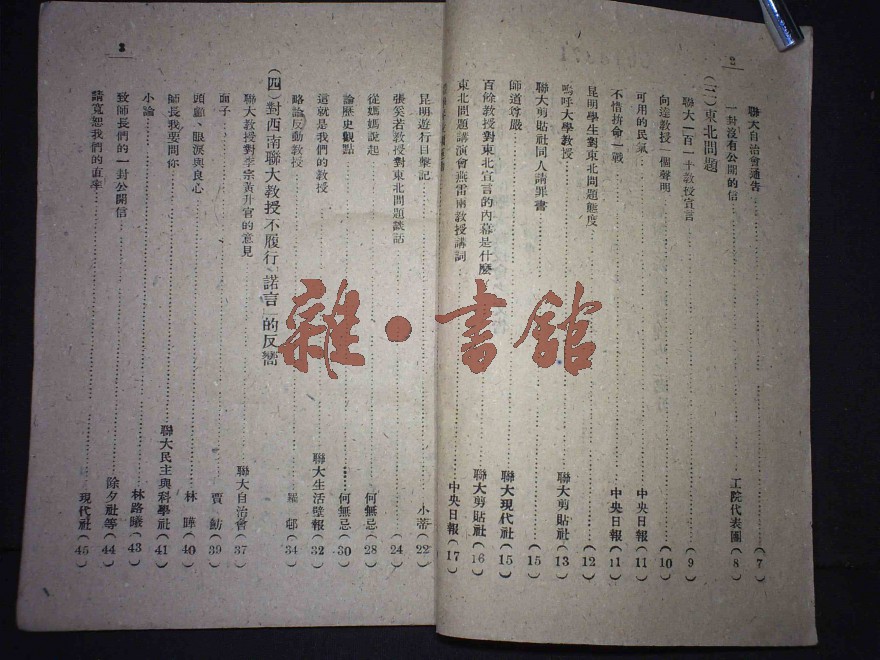 2
聯大自治會通告……(7)
一封沒有公開的信……工院代表團(8)
(三)東北問題
聯大一百一十教授宣言……(9)
向達教授一個聲明……(10)
可用的民氣……中央日報(11)
不惜拚命一戰……中央日報(11)
昆明學生對東北問題態度……(12)
嗚呼大學教授……聯大剪貼社(13)
聯大剪貼社同人請罪書……(15)
師道尊嚴……聯大現代社(15)
百餘教授對東北宣言的內幕是什麼……聯大剪貼社(16)
東北問題講演會燕雷南教授講詞……中央日報(17)
3
昆明遊行目擊記……小蒂(22)
張奚若教授對東北問題談話……(24)
從媽媽說起……何無忌(28)
論歷史觀點……何無忌(30)
這就是我們的教授……聯大生活壁報(32)
略論反動教授……(34)
(四)對西南聯大教授不履行「諾言」的反嚮
聯大教授對李宗黃升官的意見……聯大自治會(37)
面子……賈勳(39)
頭顱、眼淚與良心……林曄(40)
師長我要問你……聯大民主與科學社(41)
小論……林路曦(43)
致師長們的一封公開信……除夕社等(44)
請寬恕我們的直率……現代社(45)
雜·書館